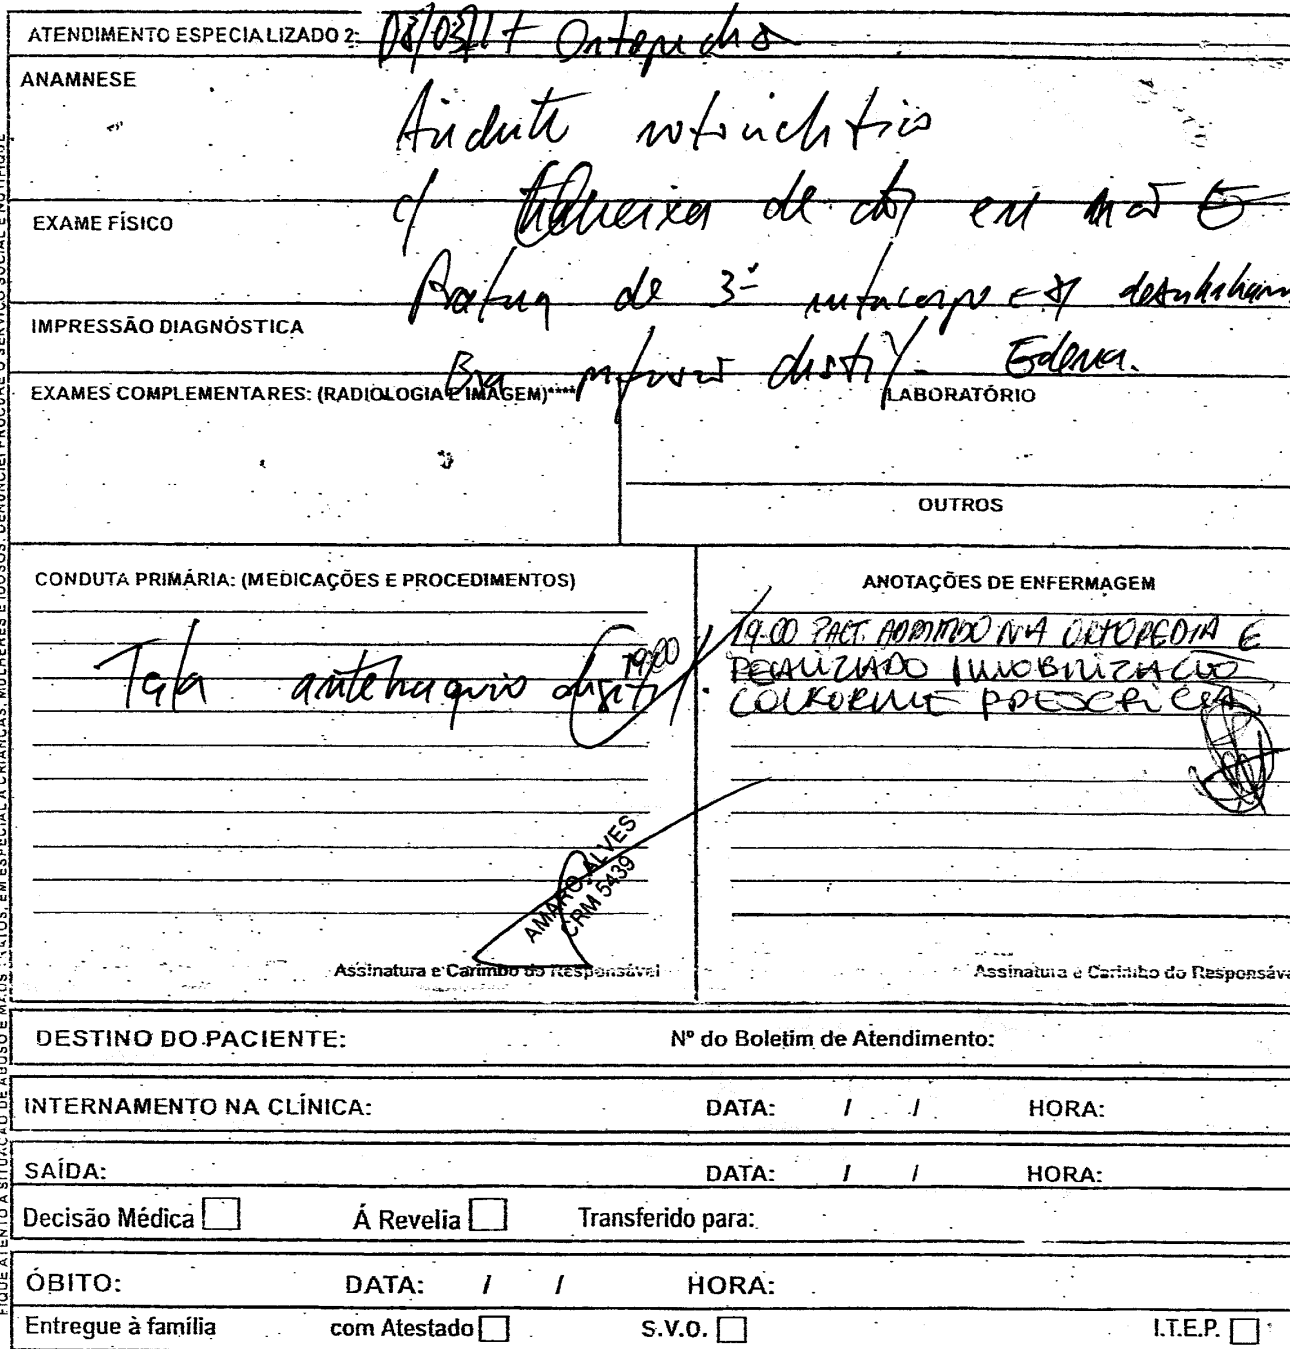 ATENDIMENTO ESPECIALIZADO 2: 08/03/17 Ortopedia
ANAMNESE
c/ queixa de dor em mão E
EXAME FÍSICO
de 3º metacarpo
IMPRESSÃO DIAGNÓSTICA
Edema.
EXAMES COMPLEMENTARES: (RADIOLOGIA E IMAGEM)****
LABORATÓRIO
OUTROS
CONDUTA PRIMÁRIA: (MEDICAÇÕES E PROCEDIMENTOS)
Tala antebraquio digital.
19:00
AMARO ALVES
CRM 5439
Assinatura e Carimbo do Responsável
ANOTAÇÕES DE ENFERMAGEM
19:00 PACT. ADMITIDO NA ORTOPEDIA E
REALIZADO IMOBILIZAÇÃO
CONFORME PRESCRIÇÃO
Assinatura e Carimbo do Responsáve
DESTINO DO PACIENTE: Nº do Boletim de Atendimento:
INTERNAMENTO NA CLÍNICA: DATA: / / HORA:
SAÍDA: DATA: / / HORA:
Decisão Médica Á Revelia Transferido para:
ÓBITO: DATA: / / HORA:
Entregue à família com Atestado S.V.O. I.T.E.P.